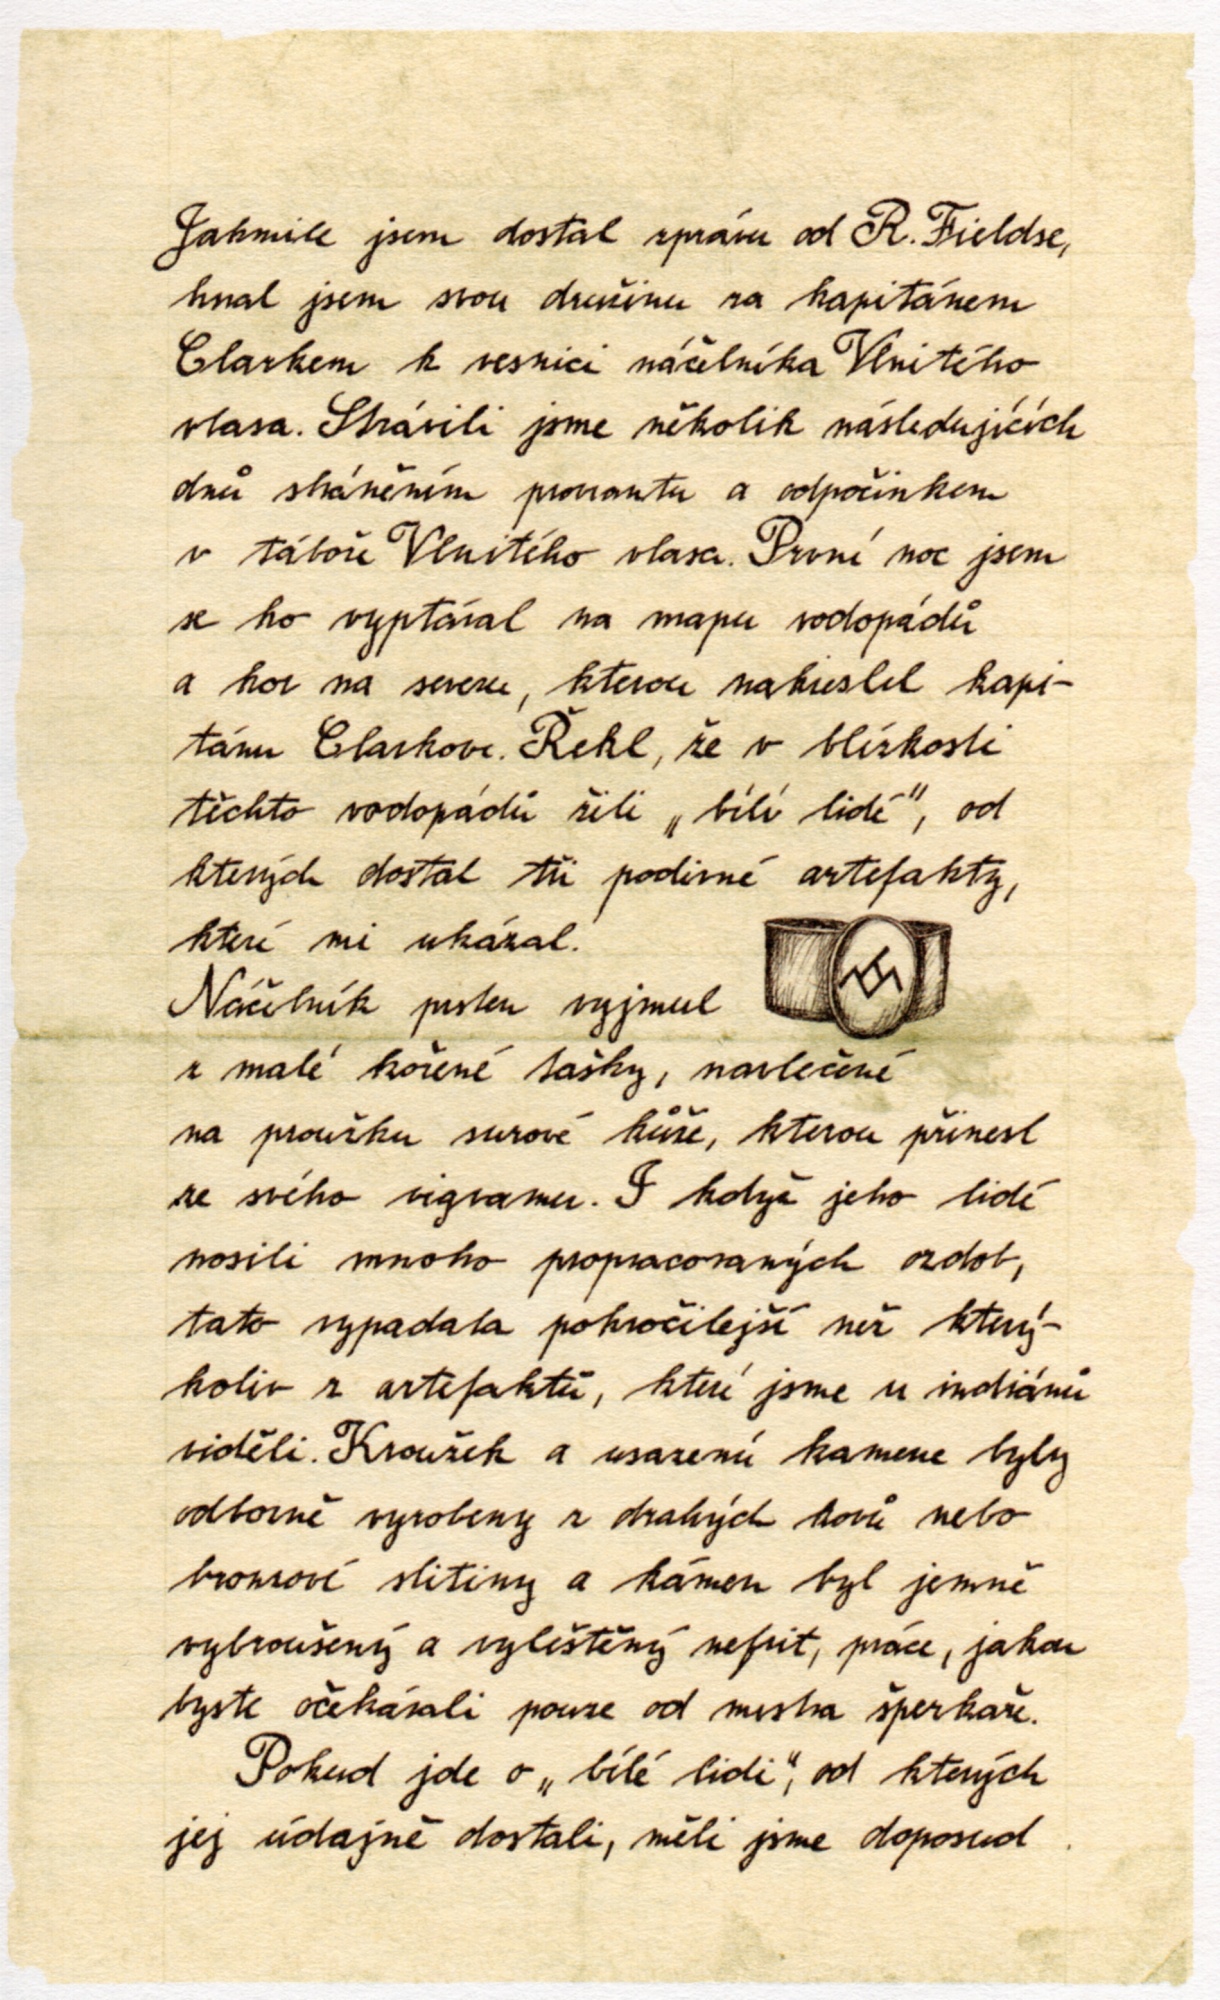 Jakmile jsem dostal zprávu od R. Fieldse,
hnal jsem svou družinu za kapitánem
Clarkem k vesnici náčelníka Vlnitého
vlasa. Strávili jsme několik následujících
dnů sháněním proviantu a odpočinkem
v táboře Vlnitého vlasa. První noc jsem
se ho vyptával na mapu vodopádů
a hor na severu, kterou nakreslil kapi-
tánu Clarkovi. Řekl, že v blízkosti
těchto vodopádů žili „bílí lidé", od
kterých dostal tři podivné artefakty,
které mi ukázal.
Náčelník prsten vyjmul
z malé kožené tašky, navlečené
na proužku surové kůže, kterou přinesl
ze svého vigvamu. I když jeho lidé
nosili mnoho propracovaných ozdob,
tato vypadala pokročilejší než který-
koliv z artefaktů, které jsme u indiánů
viděli. Kroužek a usazení kamene byly
odborně vyrobeny z drahých kovů nebo
bronzové slitiny a kámen byl jemně
vybroušený a vyleštěný nefrit, práce, jakou
byste očekávali pouze od mistra šperkaře.
Pokud jde o „bílé lidi", od kterých
jej údajně dostali, měli jsme doposud